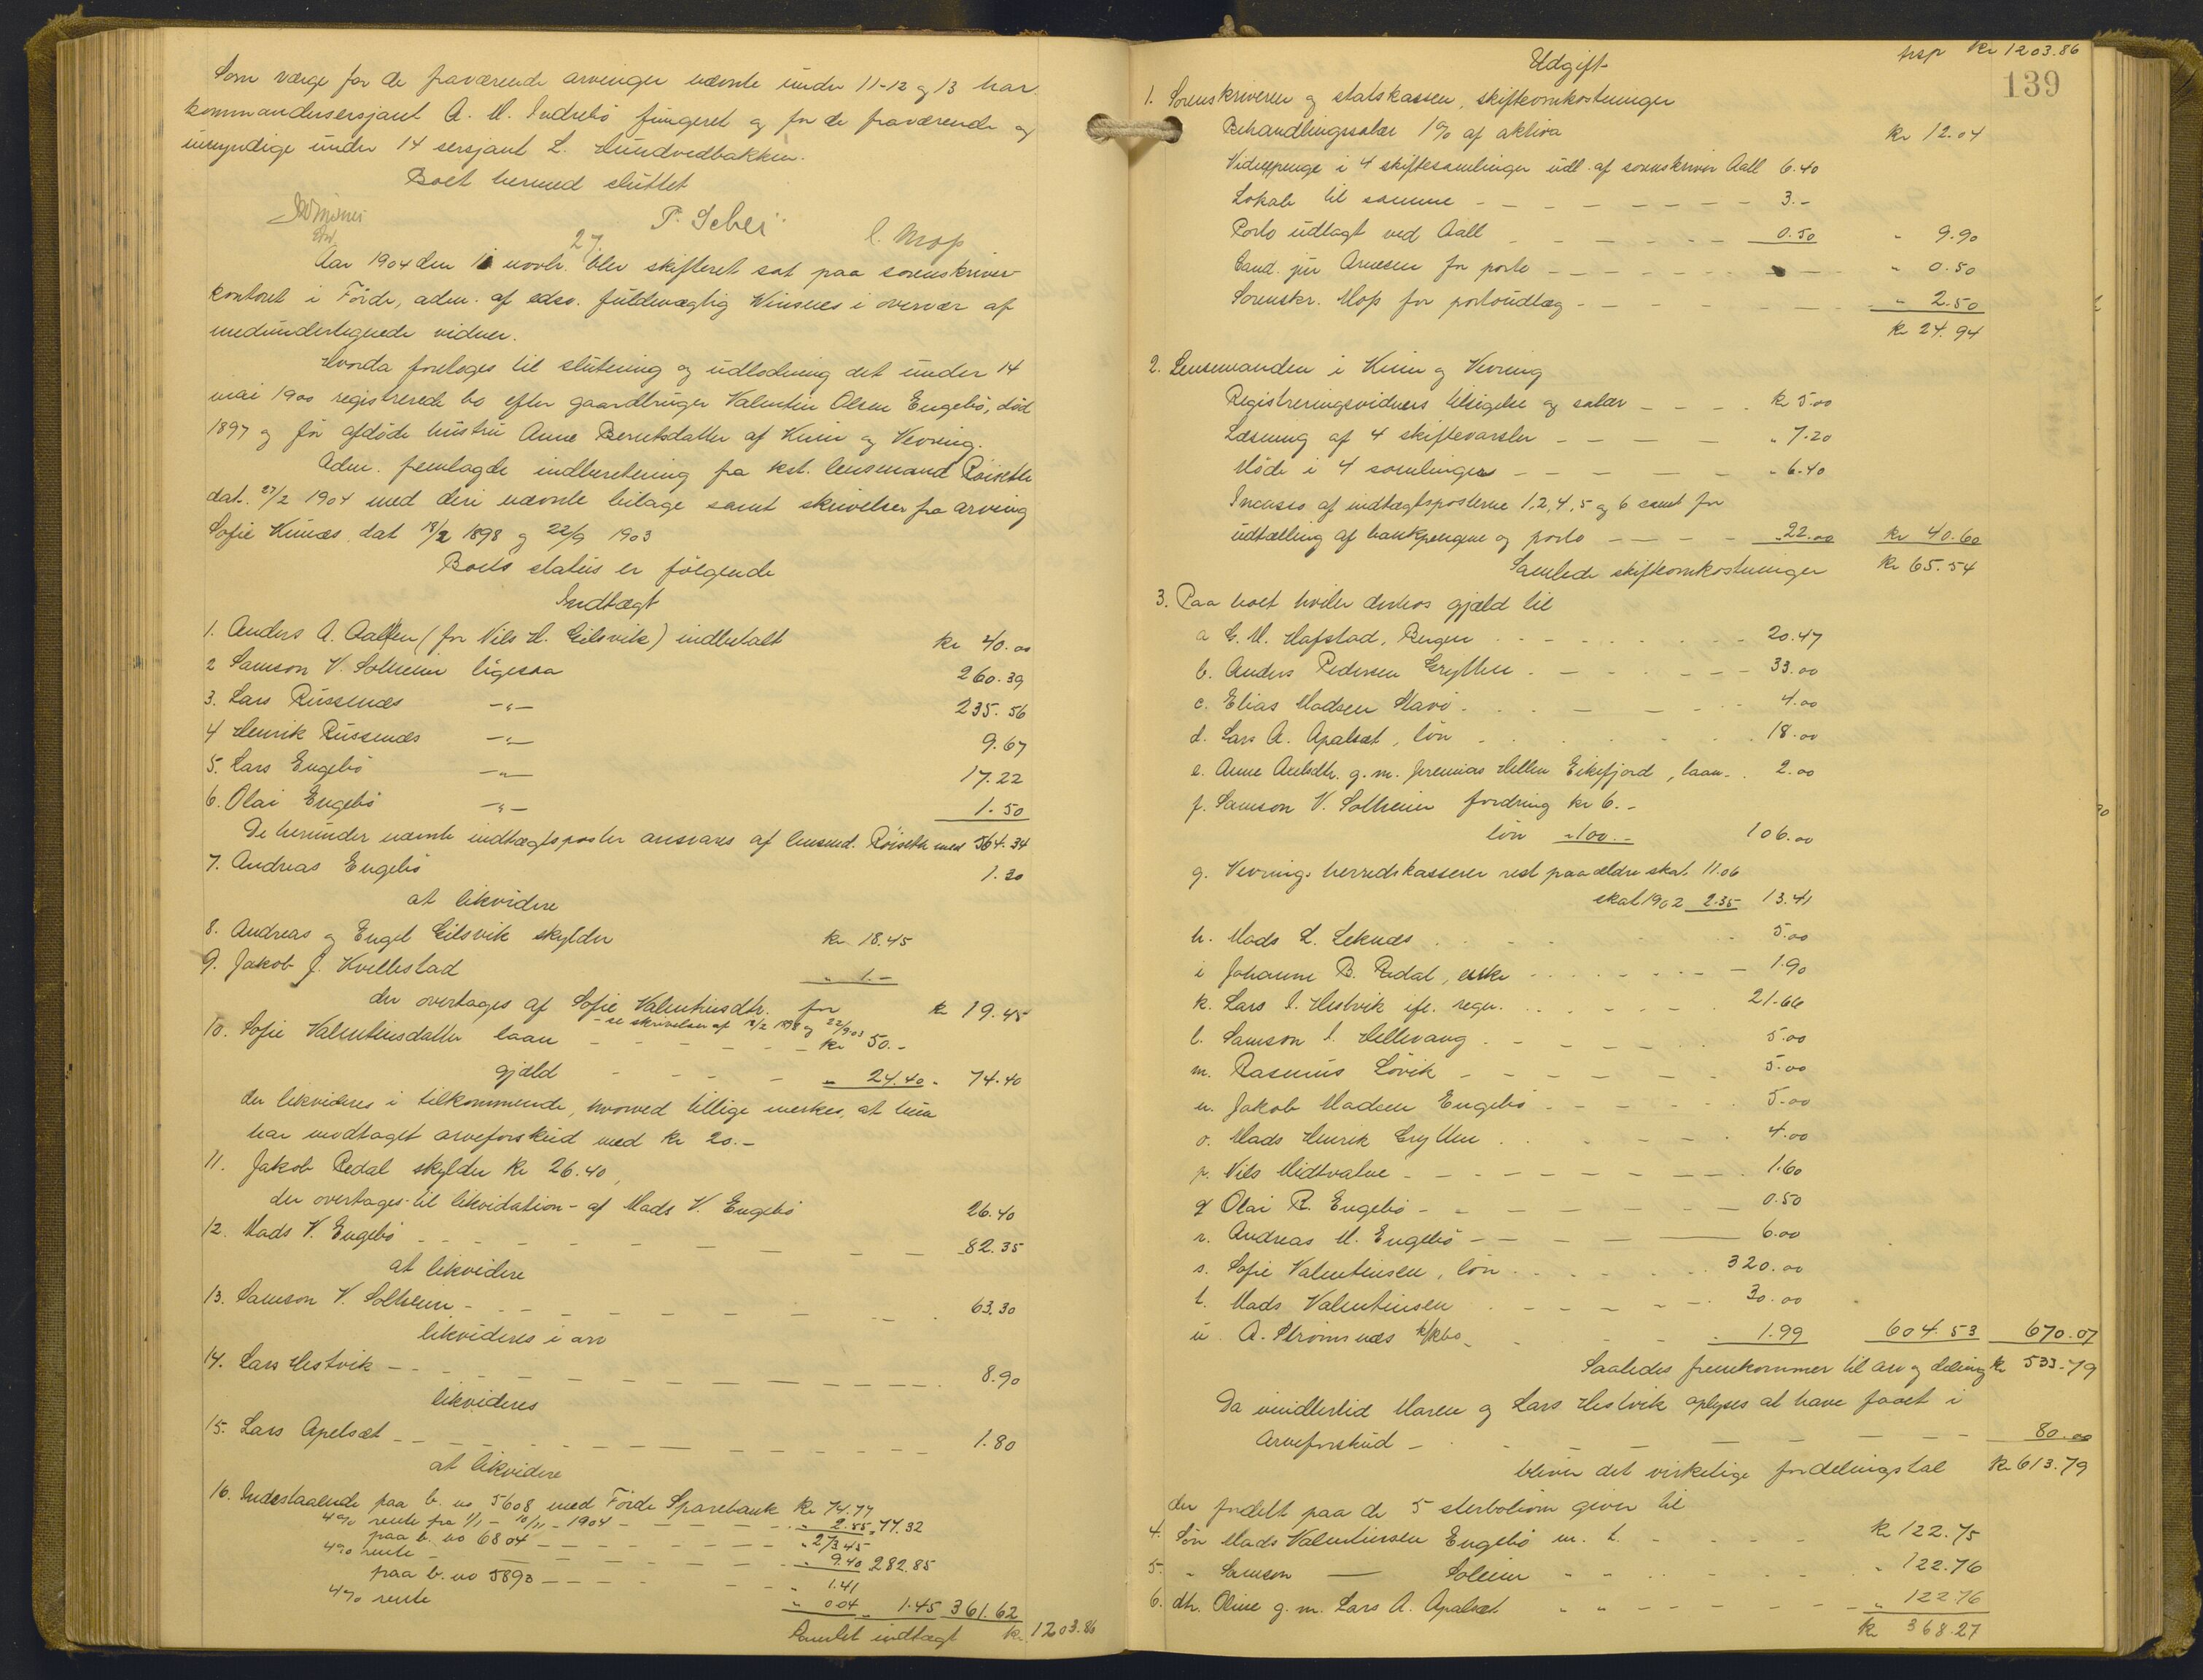 Som værge for de fraværende arvinger nævnte under 11-12 og 13 har
kommandersersjant A. M. Indrebö fungeret og for de fraværende og
umyndige under 14 sersjant L. Hundvedbakken.
Boet hermed sluttet
P. Schei
l. Mop
27
Aar 1904 den novbr. blev skifteret sat paa sorenskriver-
kontoret i Förde, adm. af edsv. fuldmægtig Winsnes i overvær af
medundertegnede vidner.
Hvorda foretoges til slutning og udlodning det under 14
mai 1900 registrerede bo efter gaardbruger Valentin Olsen Engebö, död
1897 og för afdöde hustru Anne Berntsdatter af Kinn og Vevring.
Adm. fremlagde indberetning fra kst. lensmand Röiseth
dat. 27/2 1904 med deri nævnte bilage samt skrivelser fra arving
Sofie Kinnæs dat 18/2 1898 og 22/9 1903
Boets status er fölgende
Indtægt
1. Anders A. Aalfen (for Nils H. Eilsvik) indbetalt kr 40.00
2 Samson V. Solheim ligesaa 260.39
3. Lars Russenæs -"- 235.56
4 Henrik Russenæs -"- 9.67
5. Lars Engebö -"- 17.22
6. Olai Engebö -"- 1.50
De herunder nævnte indtægtsposter ansvares af lensmd. Röiseth med 564.34
7. Andreas Engebö 1.20
at likvidere
8. Andreas og Engel Eilsvik skylder kr. 18.45
9. Jakob J. Kvellestad " 1.-
der overtages af Sofie Valentinsdtr. for kr 19.45
- se skrivelser af 18/2 1898 og 22/9 03
10. Sofie Valentinsdatter laan - - - - kr 50.-
gjæld - - - - " 24.40 - 74.40
der likvideres i tilkommende, hvorved tillige merkes, at hun
har modtaget arveforskud med kr 20.-
11. Jakob Redal skylder kr 26.40,
der overtages - til likvidation - af Mads V. Engebö 26.40
12. Mads V. Engebö - - - - 82.35
at likvidere
13. Samson V. Solheim - - - - 63.30
likvideres i arv
14. Lars Hestvik - - - - 8.90
likvideres
15. Lars Apelsæt - - - - 1.80
at likvidere
16. Indestaaende paa b. no 5608 med Förde Sparebank kr 74.77
4% rente fra 1/1 - 10/11 - 1904 - - - - " 2.55 " 77.32
paa b. no 6804 - - - - " 273.45
4% rente - - - - " 9.40 282.85
paa b. no 5893 - - - - " 1.41
4% rente " 0.04 " 1.45 361.62
Samlet indtægt kr. 1203.86
Udgift
trsp kr 1203.86
139
1. Sorenskriveren og statskassen, skifteomkostninger
Behandlingssalær 1% af aktiva kr 12.04
Vidnepenge i 4 skiftesamlinger udl. af sorenskriver Aall 6.40
Lokale til samme - - - - 3.-
Porto udlagt ved Aall - - - - 0.50 " 9.90
Cand. jur Arnesen for porto - - - - " 0.50
Sorenskr. Mop for portoudlæg - - - - " 2.50
kr 24.94
2. Lensmanden i Kinn og Vevring
Registreringsvidners tilsigelse og salær - - - kr 5.00
Læsning af 4 skiftevarsler - - - - " 7.20
Möde i 4 samlinger - - - - " 6.40
Incasso af indtægtsposterne 1, 2, 4, 5 og 6 samt for
udtælling af bankpengene og porto - - - - " 22.00 kr 40.60
Samlede skifteomkostninger kr 65.54
3. Paa boet hviler derhos gjæld til
a C. M. Hafstad, Bergen - - - - 20.47
b. Anders Pedersen Grytten - - - - 33.00
c. Elias Madsen Stavö - - - - 4.00
d. Lars A. Apalsæt, lön - - - - 18.00
e. Anne Axelsdtr. g. m. Jeremias Hellen Eikefjord, laan - . 2.00
f. Samson V. Solheim fordring kr 6.-
lön " 100.- 106.00
g. Vevrings herredskasserer rest paa ældre skat 11.06
skat 1902 2.35 13.41
h. Mads L. Leknæs - - - - 5.00
i Johanne B. Redal, enke - - - - 1.90
k. Lars I. Hestvik ifl. regn. - - - - 21.66
l. Samson I. Hellevang - - - - 5.00
m. Rasmus Lövik - - - - 5.00
n. Jakob Madsen Engebö - - - - 5.00
o. Mads Henrik Grytten - - - - 4.00
p. Nils Midtvalne - - - - 1.60
q Olai R. Engebö - - - - 0.50
r. Andreas M. Engebö - - - - 6.00
s. Sofie Valentinsen, lön - - - - 320.00
t. Mads Valentinsen - - - - 30.00
u. A. Strömsnæs k/kbo - - - - 1.99 604.53 670.07
Saaledes fremkommer til arv og deling kr 533.79
Da imidlertid Maren og Lars Hestvik oplyses at have faaet i
Arveforskud - - - - 80.00
bliver det virkelige fordelingstal kr 613.79
der fordelt paa de 5 sterboliöm giver til
4. Sön Mads Valentinsen Engebö m. t. - - - - kr 122.75
5. " Samson — Soleim - - - - " 122.76
6. dtr. Oline g. m. Lars A. Apalsæt - - - - " 122.76
kr 368.27